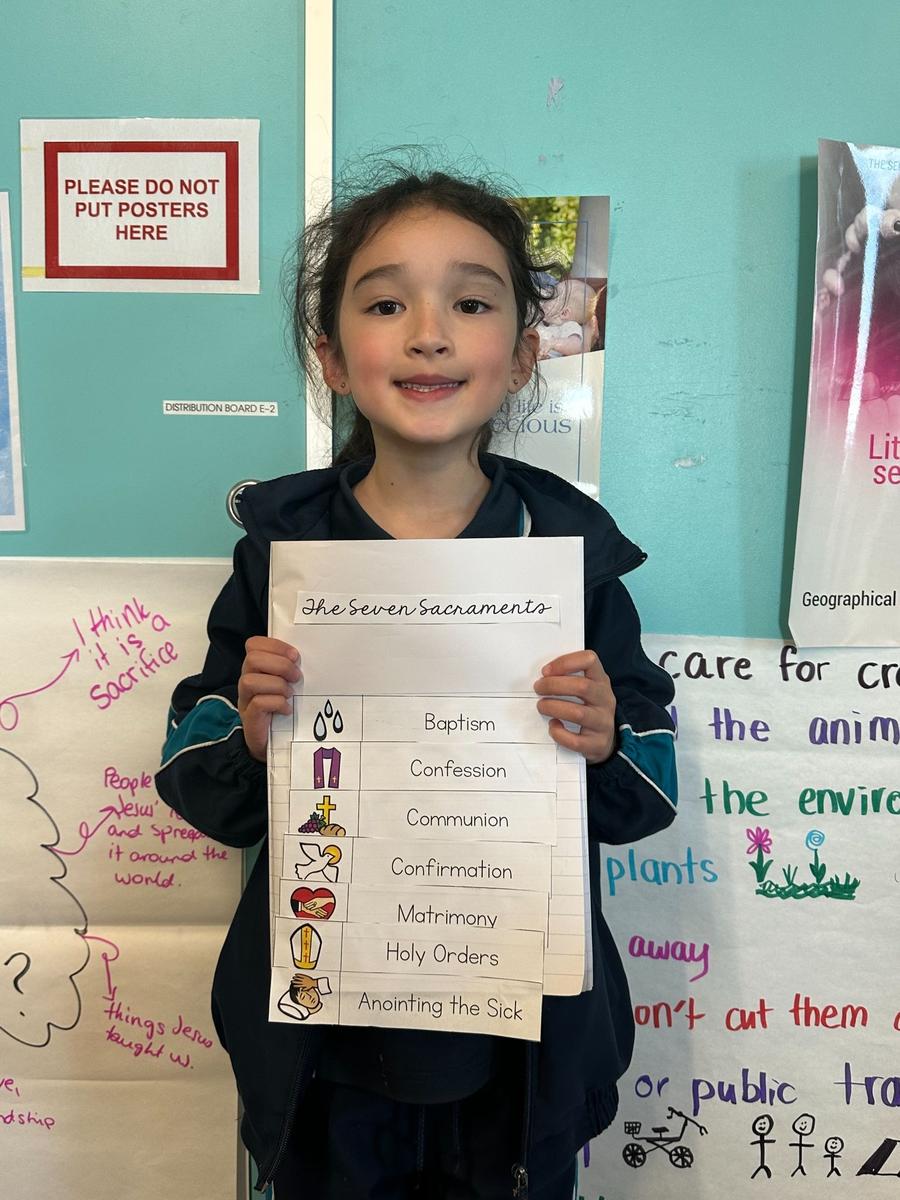 PLEASE DO NOT
PUT POSTERS
HERE
DISTRIBUTION BOARD E-2
life is
THE
Geographical
I think
it is a
sacrifice
People
Jesus'
and spread
it around the
world.
?
things Jesus
taught us.
The Seven Sacraments
Baptism
Confession
Communion
Confirmation
Matrimony
Holy Orders
Anointing the Sick
care for
the
the
plants
away
cut them
or public